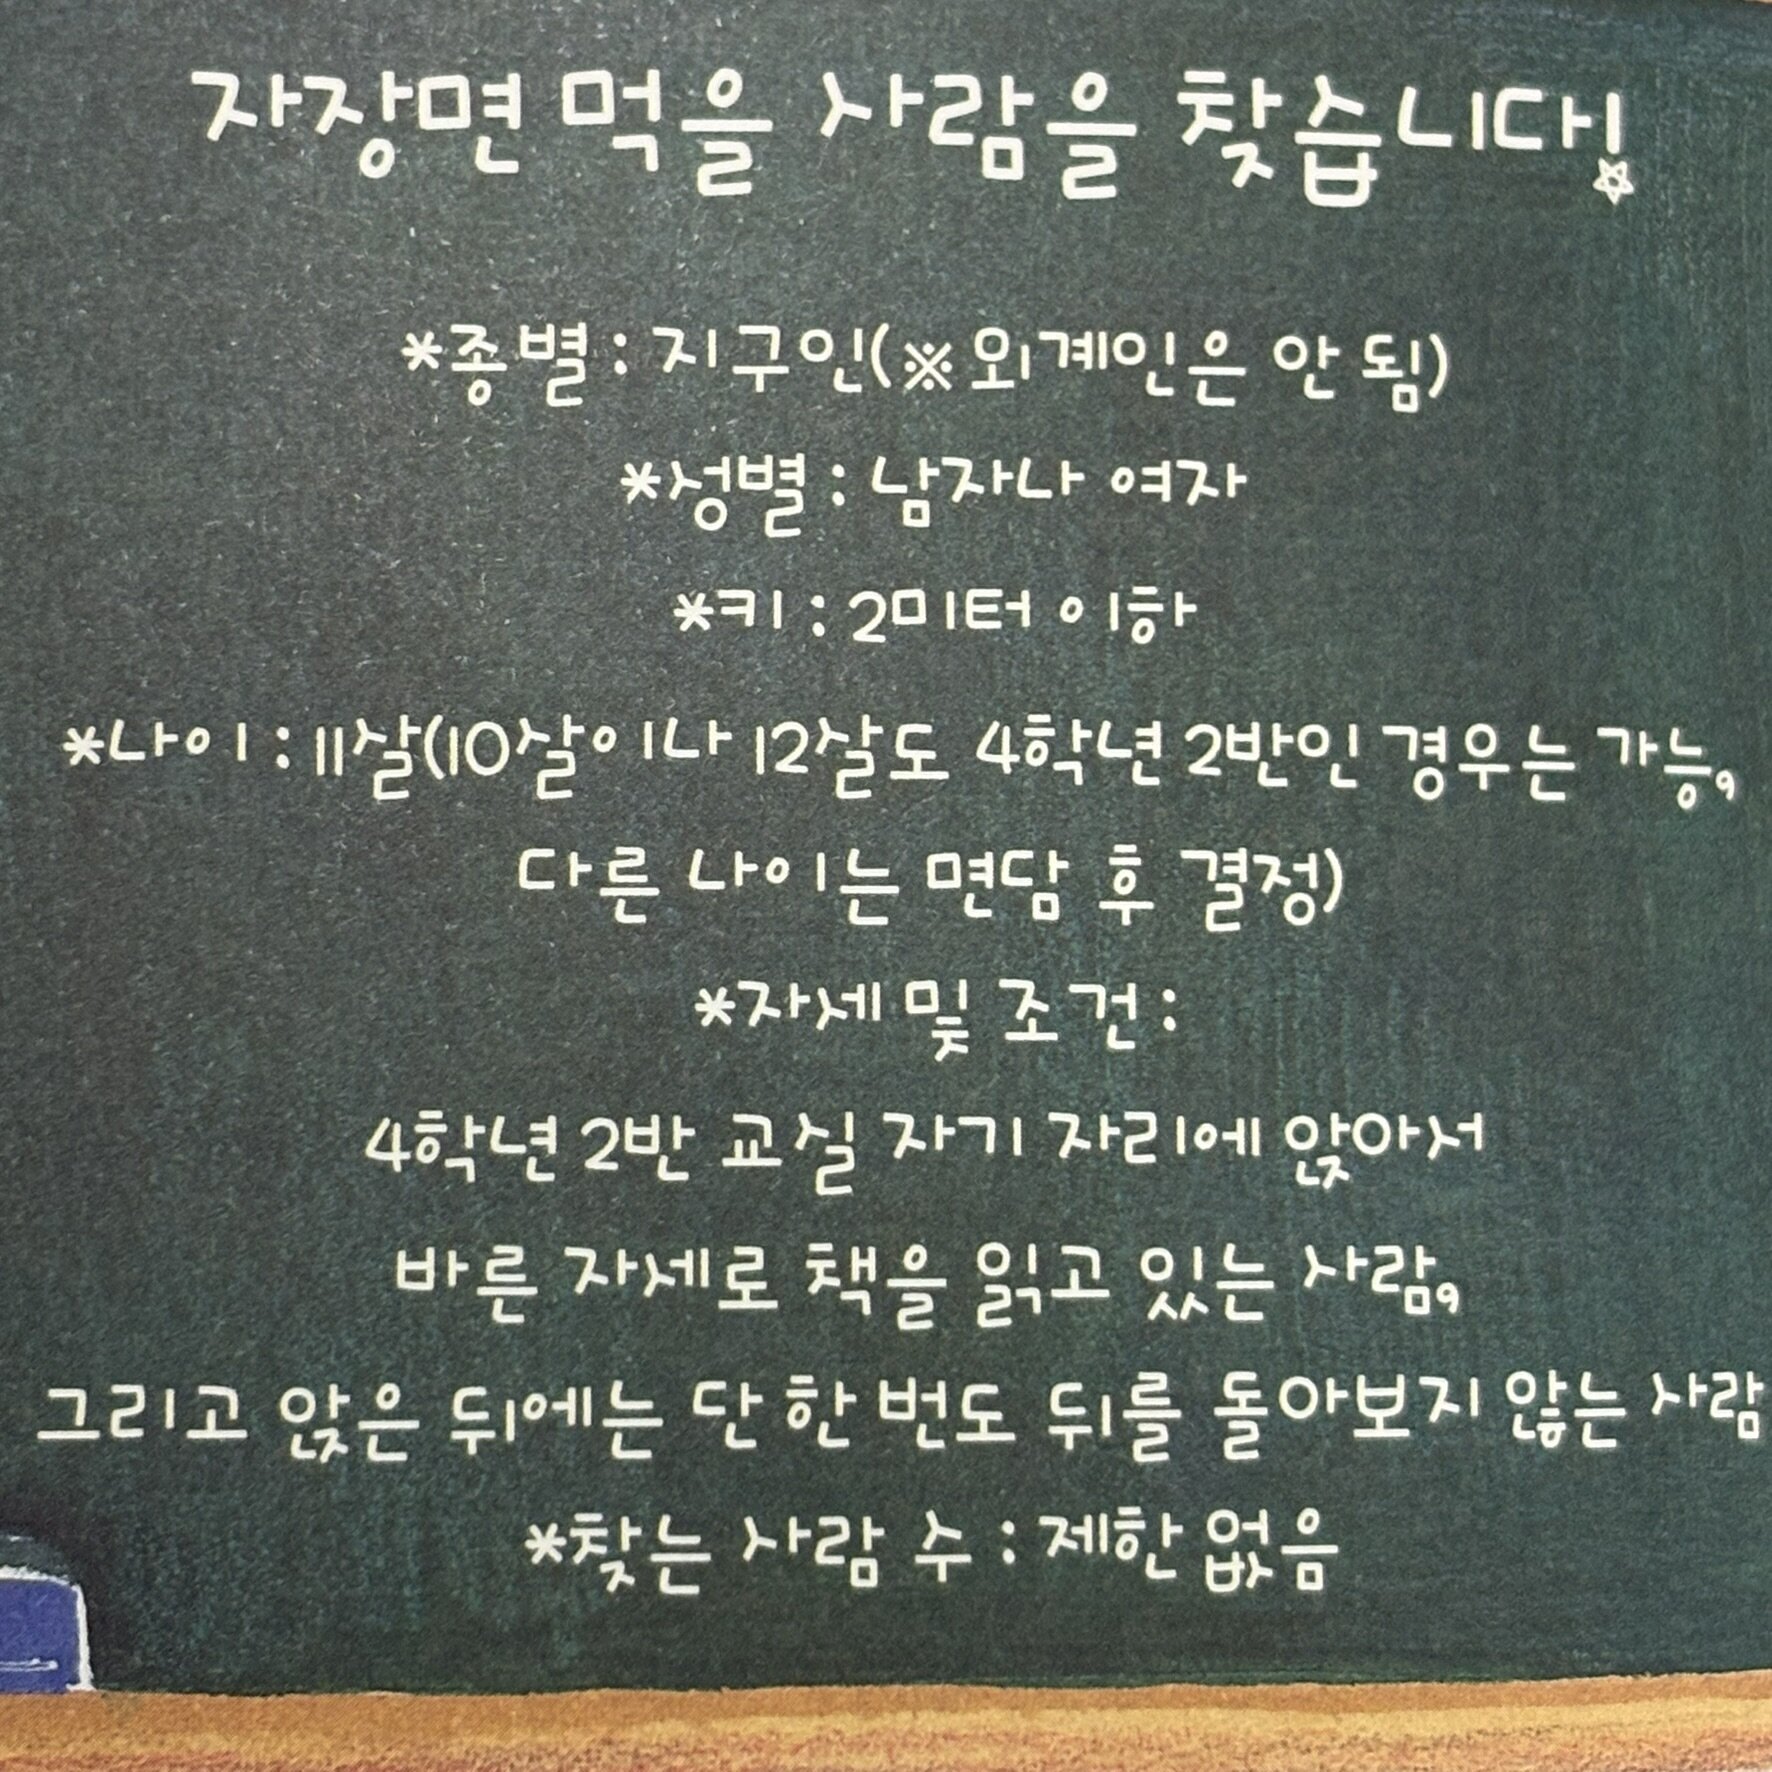 자장면 먹을 사람을 찾습니다!
*종별 : 지구인(※외계인은 안 됨)
*성별 : 남자나 여자
*키 : 2미터 이하
*나이 : 11살(10살이나 12살도 4학년 2반인 경우는 가능,
다른 나이는 면담 후 결정)
*자세 및 조건 :
4학년 2반 교실 자기 자리에 앉아서
바른 자세로 책을 읽고 있는 사람,
그리고 앉은 뒤에는 단 한 번도 뒤를 돌아보지 않는 사람
*찾는 사람 수 : 제한 없음